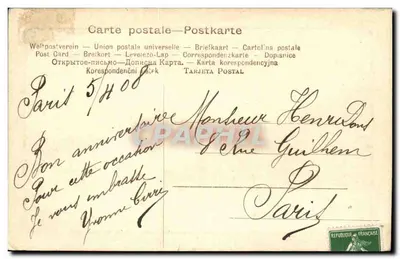 Carte postale—Postkarte
Weltpostverein — Union postale universelle — Briefkaart — Cartolina postale
Post Card — Brefkort — Levelezo-Lap — Correspondenzkarte — Dopisnice
Открытое-письмо—Дописна Карта. — Karta korespondencyjna
Korespondenční lístek — TARJETA POSTAL
Paris 5/4 08
Bon anniversaire
Pour cette occasion
Je vous embrasse
Yvonne
Monsieur Henri
8 Rue Guilhem
Paris
REPUBLIQUE FRANÇAISE